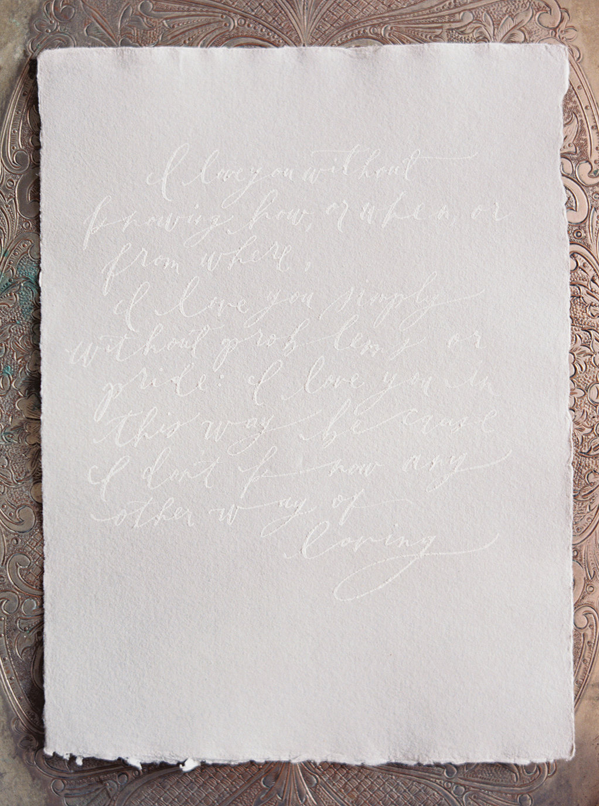 I love you without
knowing how, or when, or
from where,
I love you simply
without problems or
pride: I love you in
this way because
I don't know any
other way of
loving